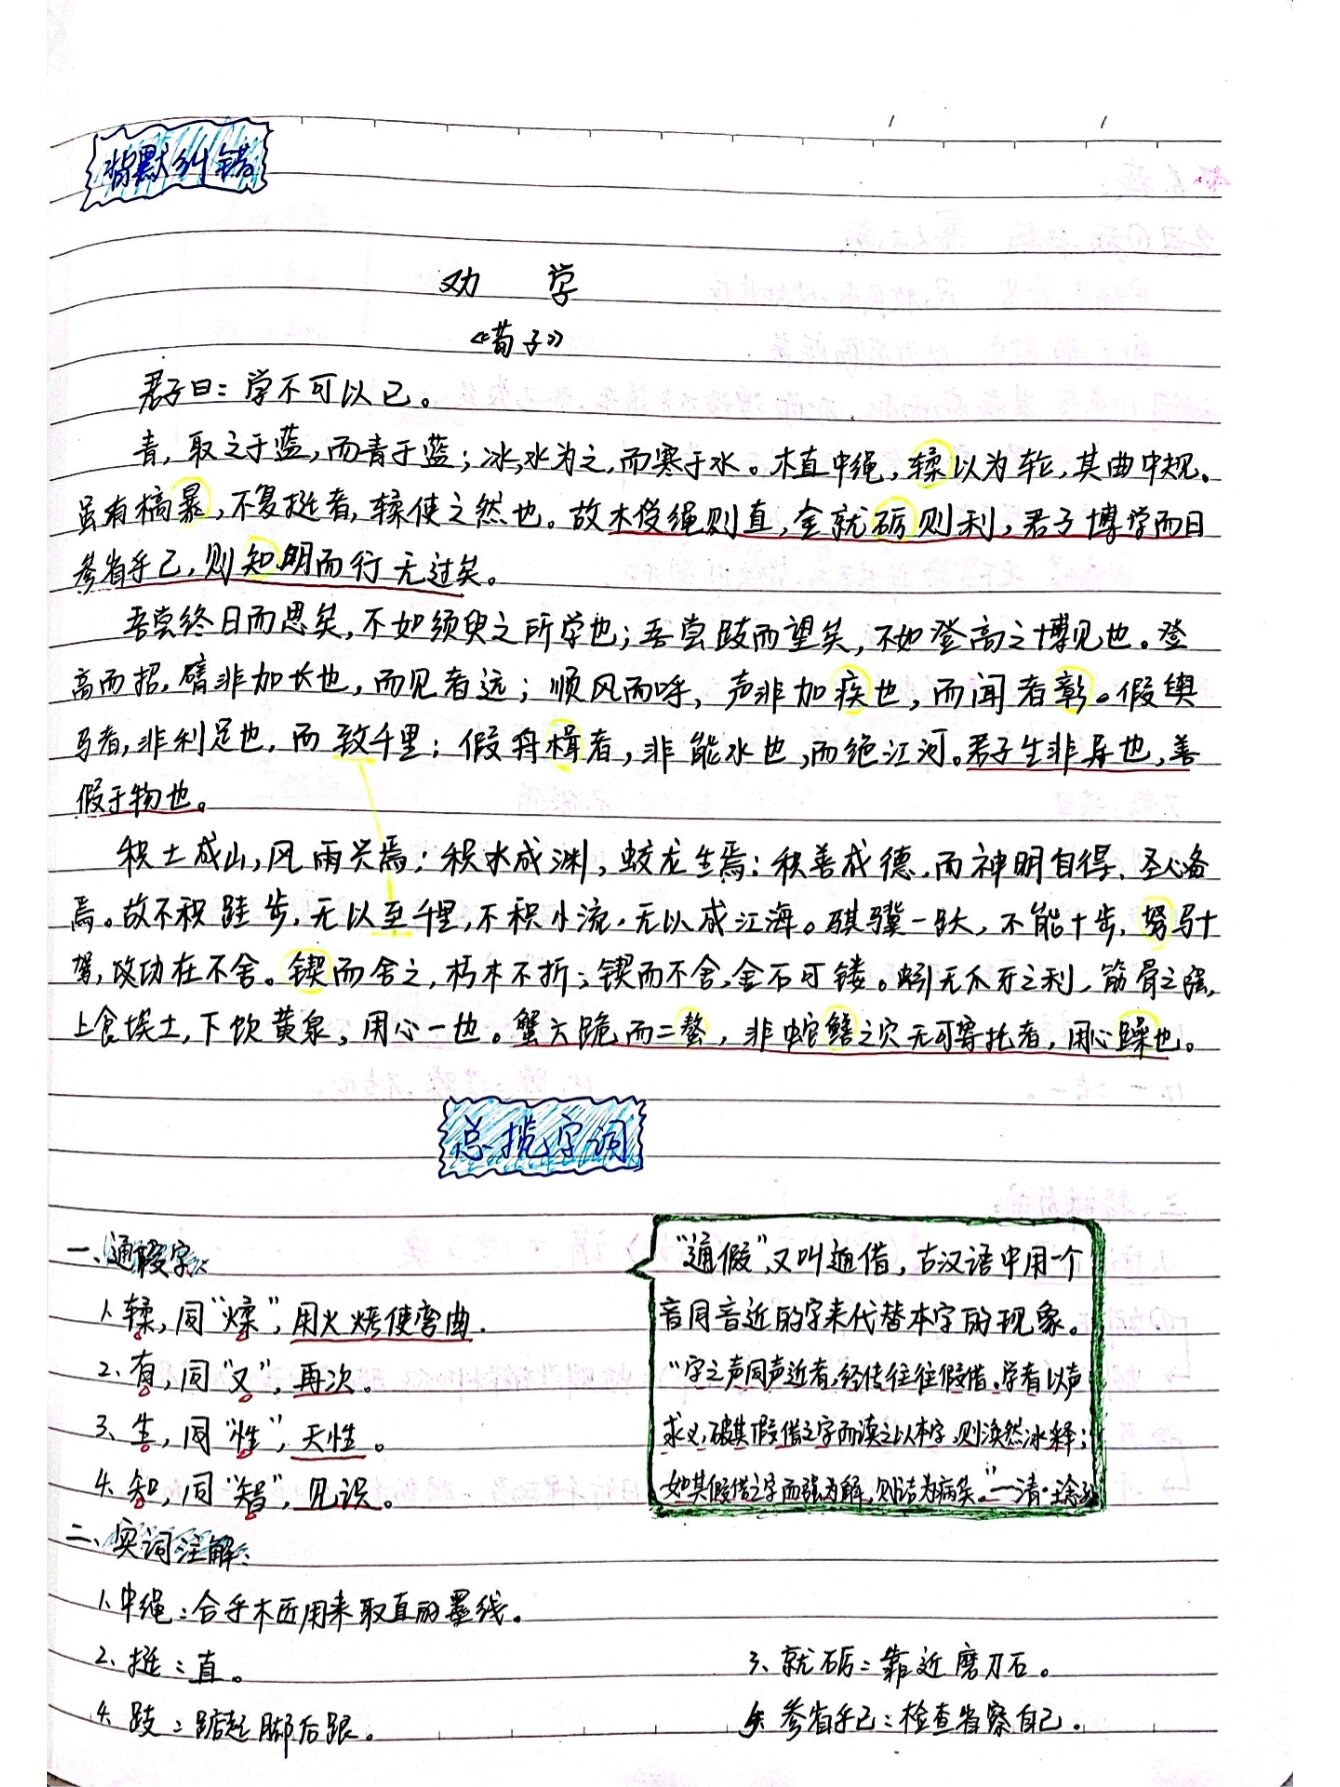 背默纠错
劝 学
《荀子》
君子曰：学不可以已。
青，取之于蓝，而青于蓝；冰，水为之，而寒于水。木直中绳，輮以为轮，其曲中规。
虽有槁暴，不复挺者，輮使之然也。故木受绳则直，金就砺则利，君子博学而日
参省乎己，则知明而行无过矣。
吾尝终日而思矣，不如须臾之所学也；吾尝跂而望矣，不如登高之博见也。登
高而招，臂非加长也，而见者远；顺风而呼，声非加疾也，而闻者彰。假舆
马者，非利足也，而致千里；假舟楫者，非能水也，而绝江河。君子生非异也，善
假于物也。
积土成山，风雨兴焉；积水成渊，蛟龙生焉；积善成德，而神明自得，圣心备
焉。故不积跬步，无以至千里，不积小流，无以成江海。骐骥一跃，不能十步，驽马十
驾，攻功在不舍。锲而舍之，朽木不折；锲而不舍，金石可镂。蚓无爪牙之利，筋骨之强，
上食埃土，下饮黄泉，用心一也。蟹六跪而二螯，非蛇鳝之穴无可寄托者，用心躁也。
总揽字词
一、通假字：
1、輮，同“煣”，用火烤使弯曲.
2、有，同“又”，再次。
3、生，同“性”，天性。
4、知，同“智”，见识。
“通假”，又叫通借，古汉语中用一个
音同音近的字来代替本字的现象。
“字之声同声近者，经传往往假借。学者以声
求义，破其假借之字而读之以本字，则涣然冰释；
如其假借之字而强为解，则诘为病矣。”—清·王念孙
二、实词注解：
1、中绳：合乎木匠用来取直的墨线。
2、挺：直。
3、就砺：靠近磨刀石。
4、跂：踮起脚后跟。
5、参省乎己：检查省察自己。